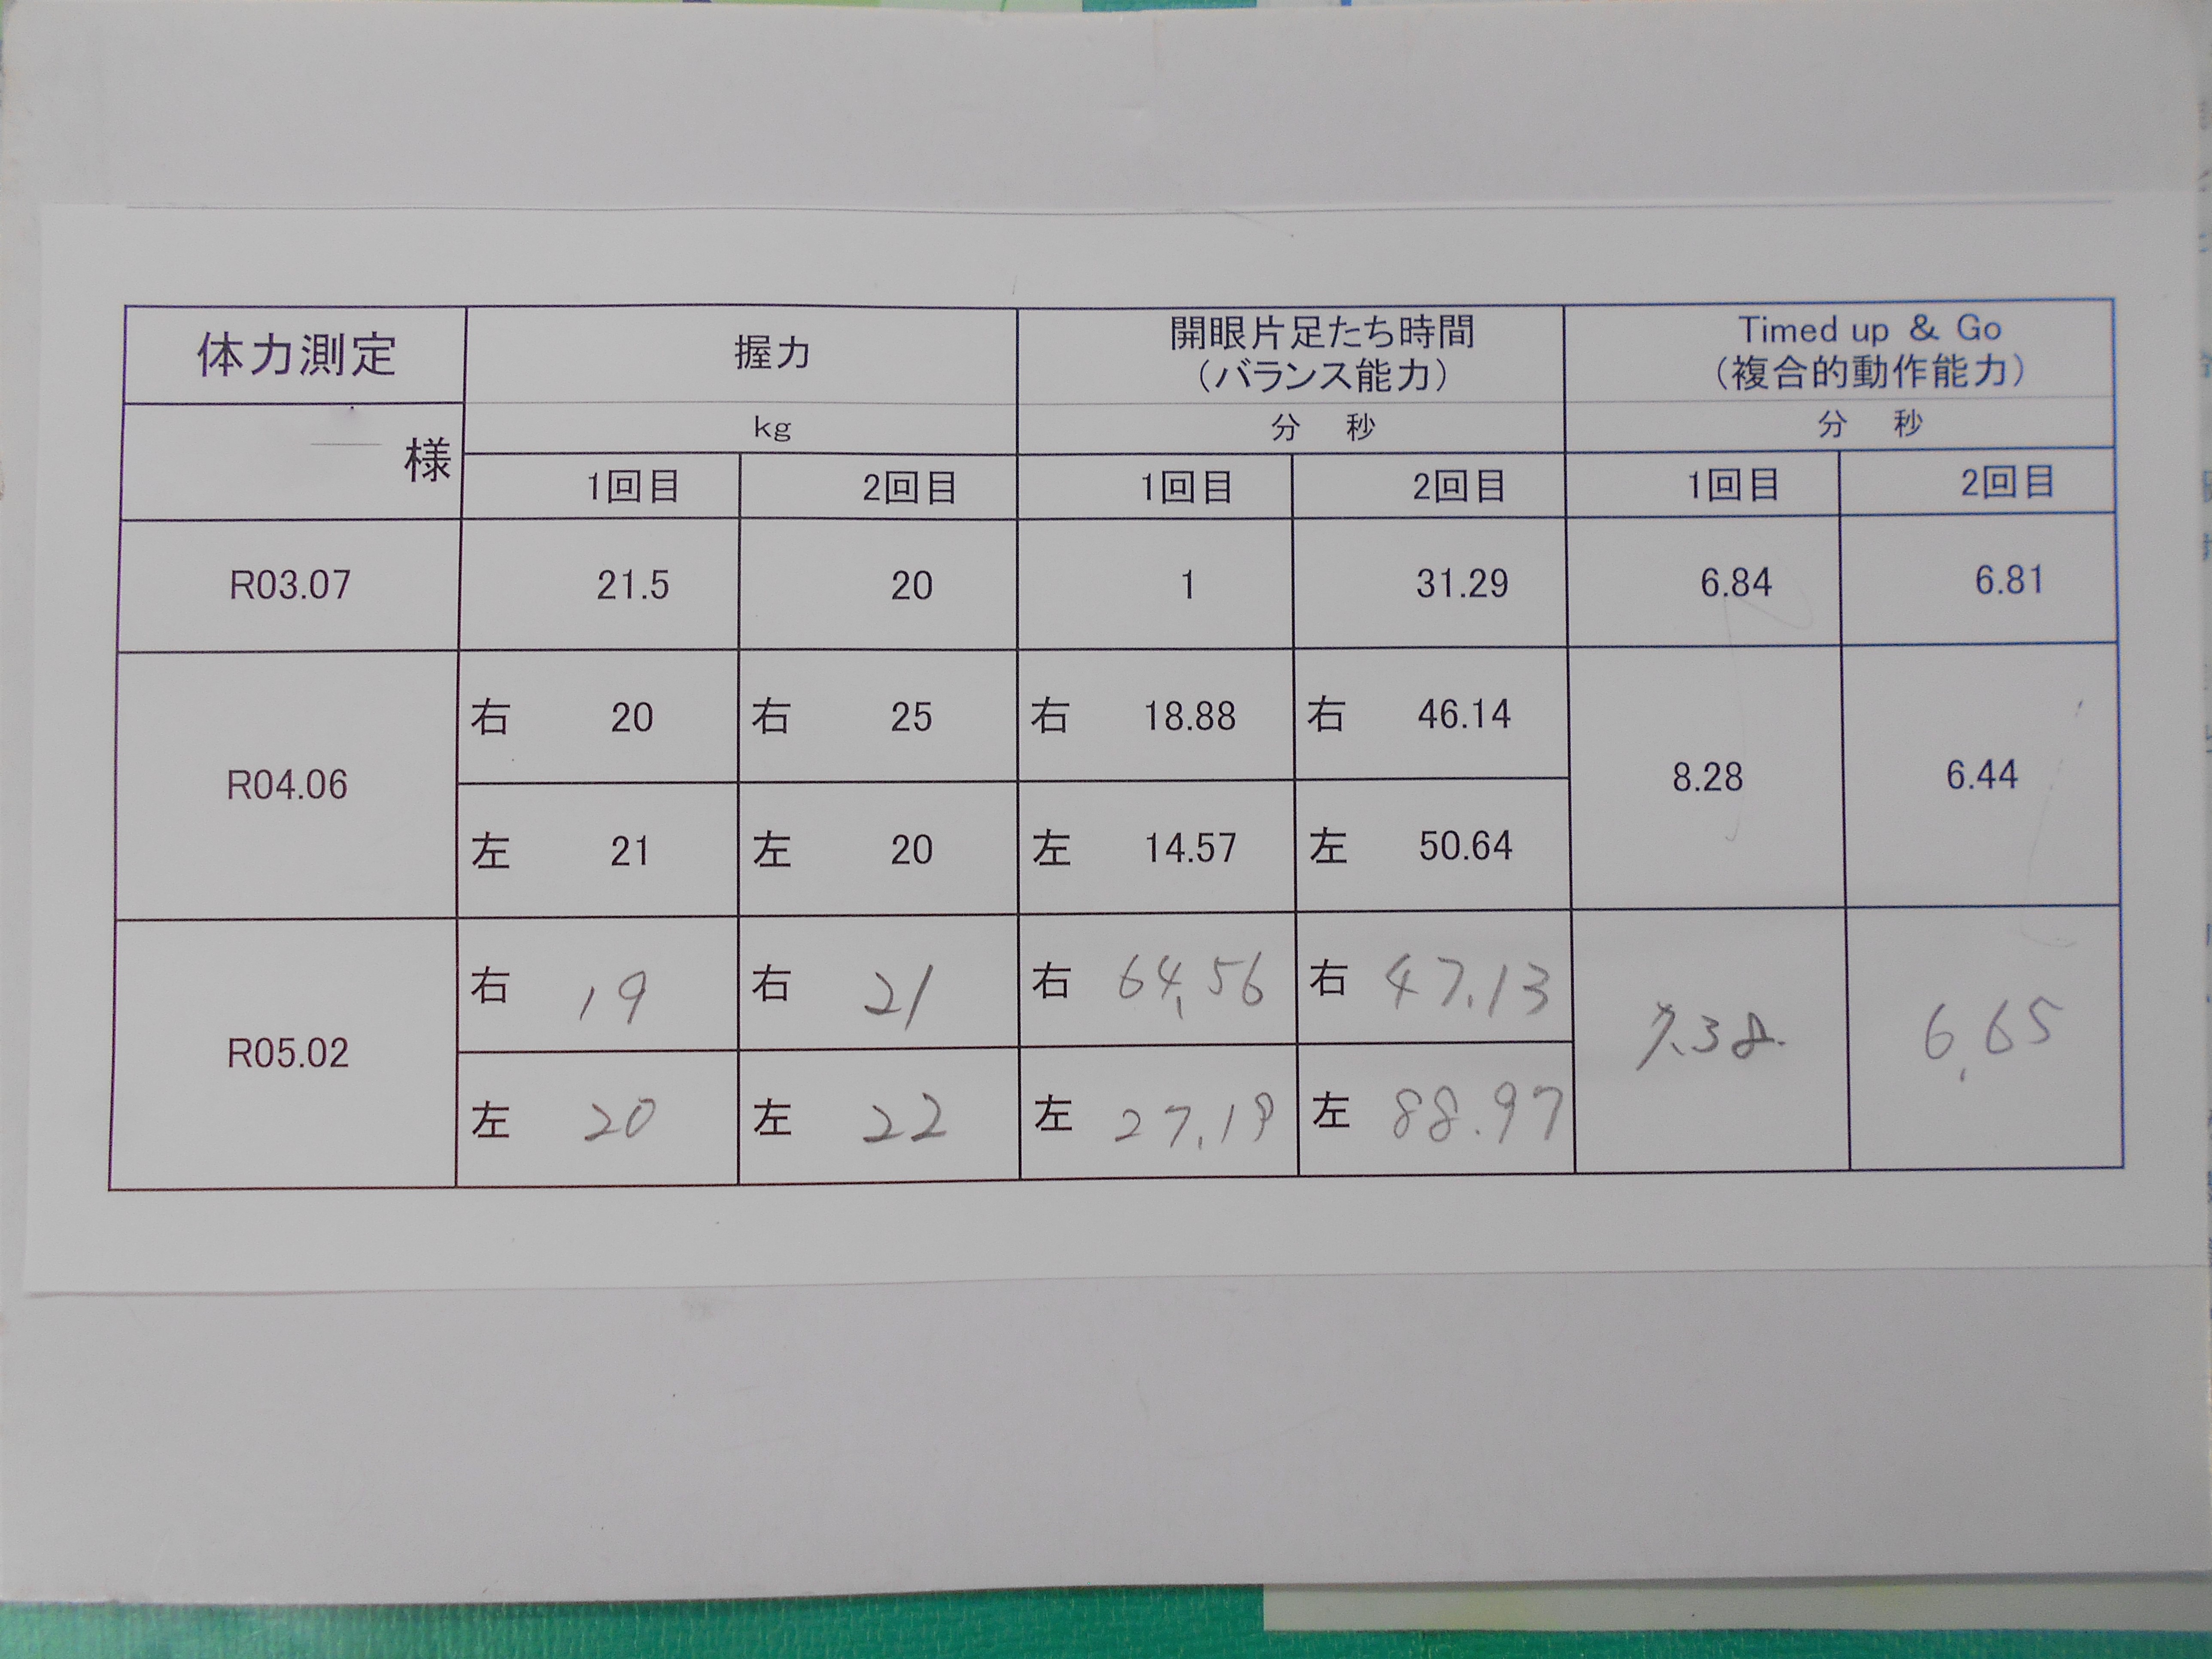 体力測定 握力 開眼片足たち時間 Timed up & Go
(バランス能力) (複合的動作能力)
様 kg 分 秒 分 秒
1回目 2回目 1回目 2回目 1回目 2回目
R03.07 21.5 20 1 31.29 6.84 6.81
R04.06 右 20 右 25 右 18.88 右 46.14 8.28 6.44
左 21 左 20 左 14.57 左 50.64
R05.02 右 19 右 21 右 64.56 右 47.13 7.38. 6.65
左 20 左 22 左 27.19 左 88.97